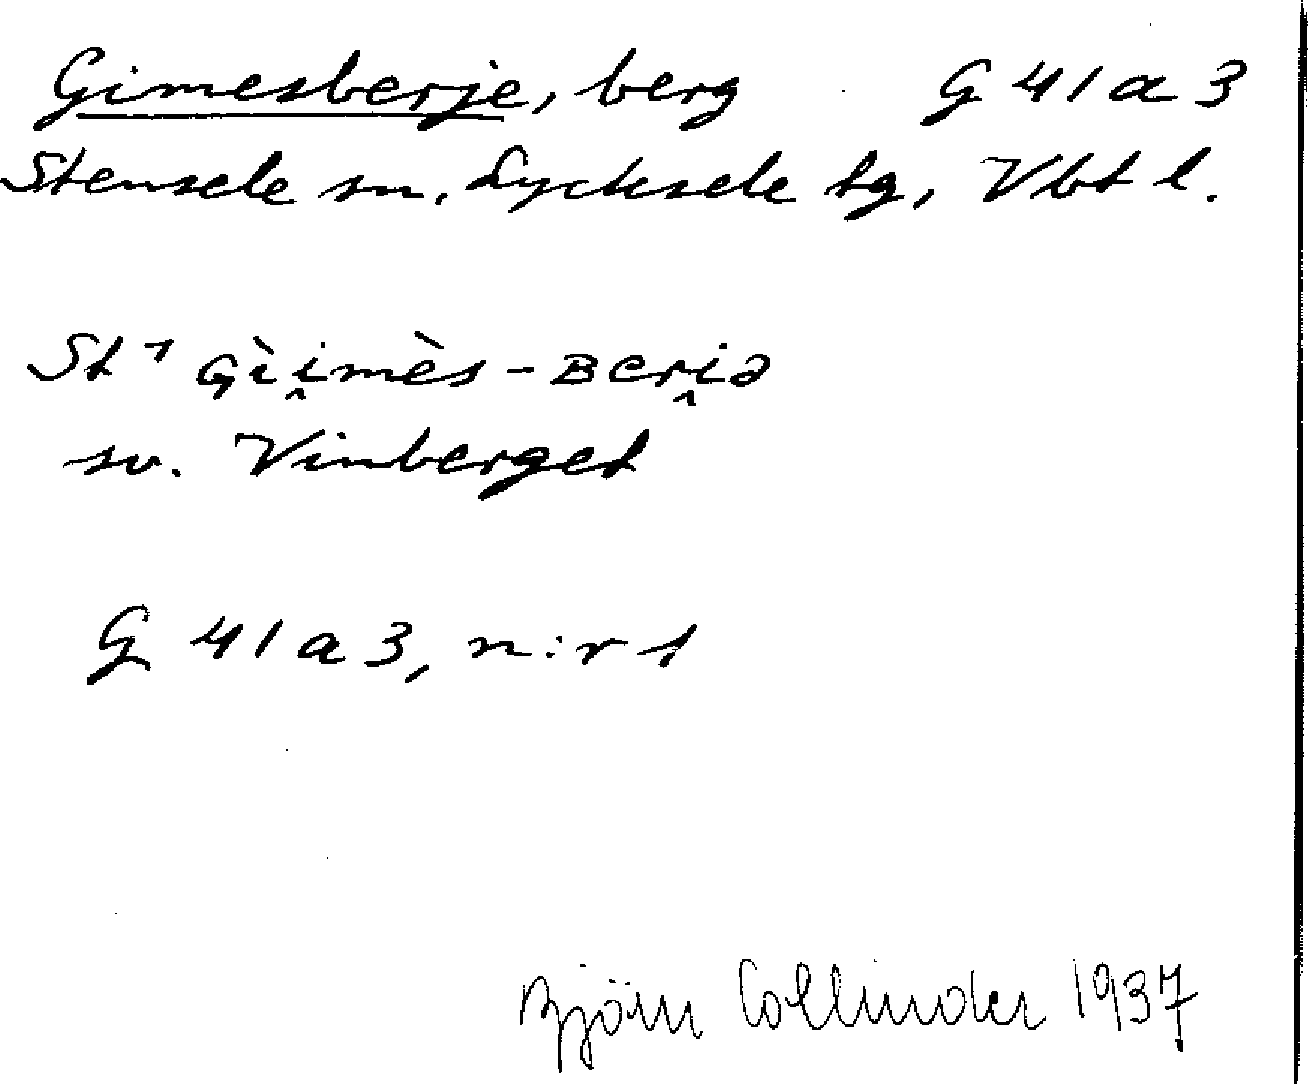 Gimesberje, berg G 41 a 3
Stensele sn. Lycksele tg, Vbt l.
St⁊ Gìi̭mès-Beri̭ə
sv. Vinberget
G 41 a 3, n:r 1
Björn Collinder 1937